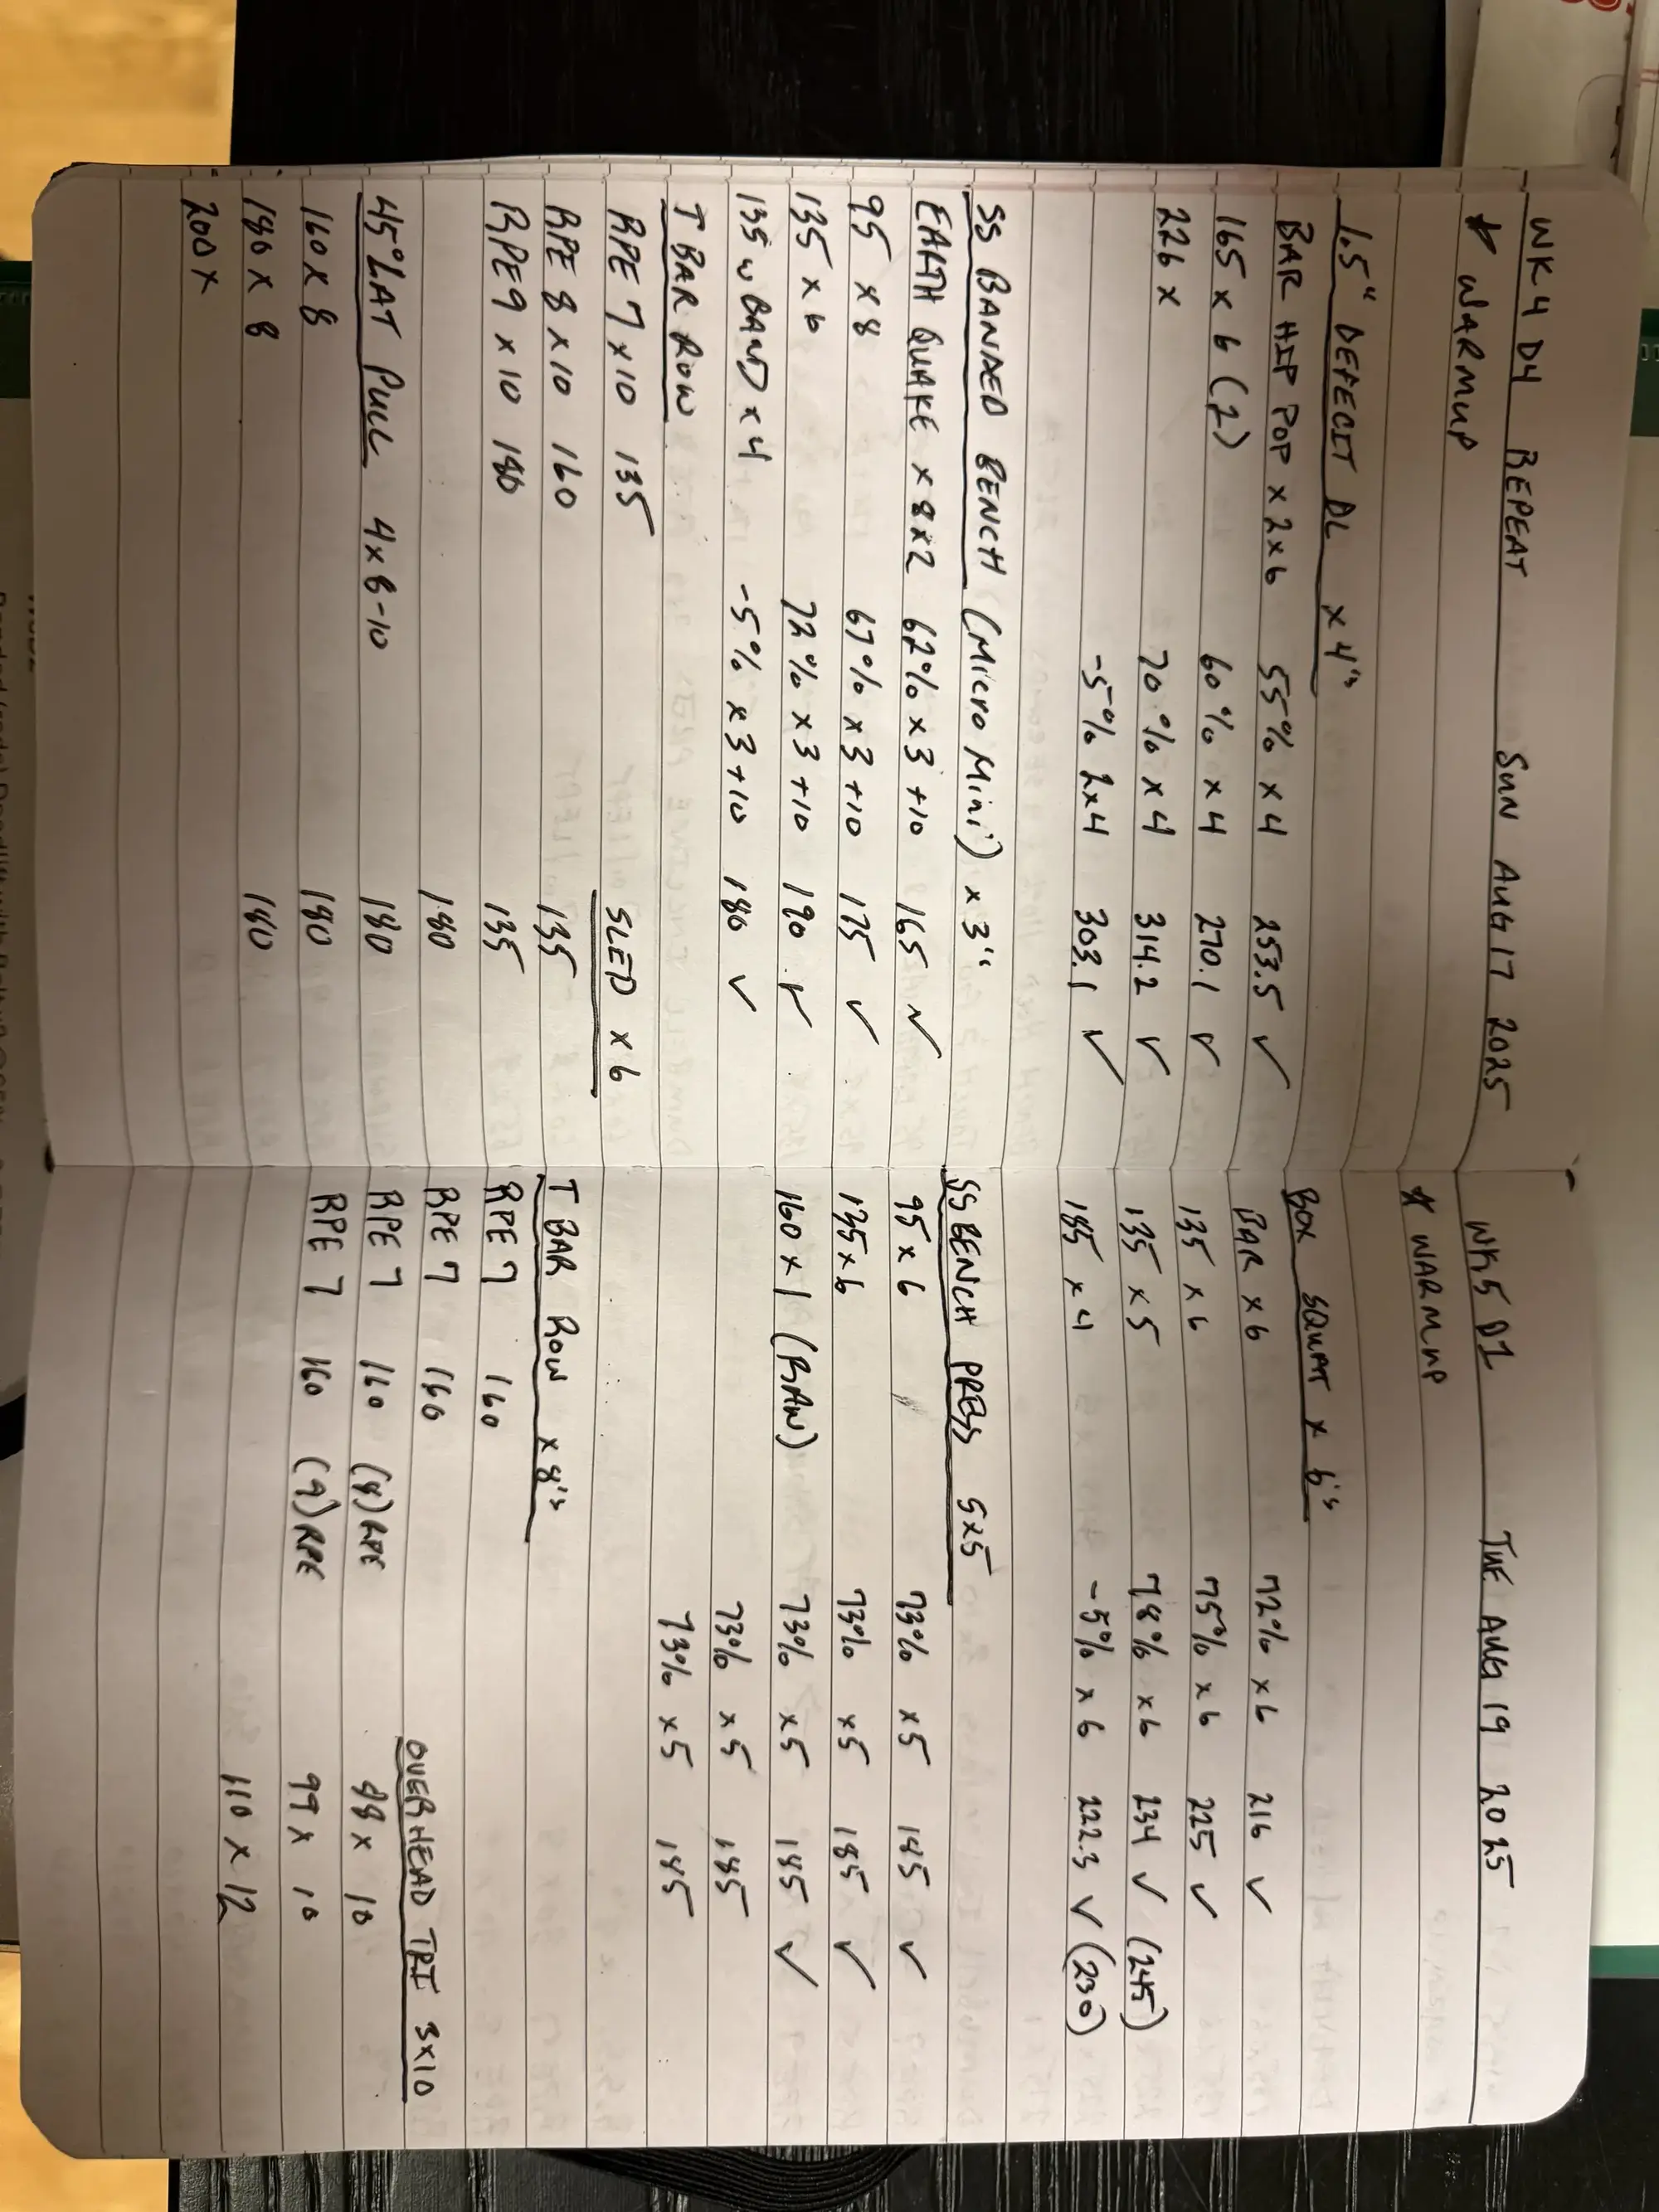 WK 4 D4 REPEAT SUN AUG 17 2025
* WARMUP
1.5" DEFECIT DL x 4's
BAR HIP POP x 2 x 6 55% x 4 253.5 ✓
165 x 6 (2) 60% x 4 270.1 ✓
226 x 70% x 4 314.2 ✓
-5% 2x4 303.1 ✓
SS BANDED BENCH (Micro Mini) x 3's
EARTH QUAKE x 8 x 2 62% x 3 +10 165 ✓
95 x 8 67% x 3 +10 175 ✓
135 x 6 72% x 3 +10 190 ✓
135 w BAND x 4 -5% x 3 +10 180 ✓
T BAR ROW
RPE 7 x 10 135
RPE 8 x 10 160
RPE 9 x 10 180
SLED x 6
135
135
180
180
180
180
45° LAT PULL 4 x 8-10
160 x 8
180 x 8
200 x
WK 5 D1 TUE AUG 19 2025
* WARMUP
BOX SQUAT x 6's
BAR x 6 72% x 6 216 ✓
135 x 6 75% x 6 225 ✓
135 x 5 78% x 6 234 ✓ (245)
185 x 4 -5% x 6 222.3 ✓ (230)
SS BENCH PRESS 5x5
95 x 6 73% x 5 185 ✓
135 x 6 73% x 5 185 ✓
160 x 1 (RAW) 73% x 5 185 ✓
73% x 5 185
73% x 5 185
T BAR ROW x 8's
RPE 7 160
RPE 7 160
RPE 7 160 (8) RPE
RPE 7 160 (9) RPE
OVERHEAD TRI 3x10
88 x 10
99 x 10
110 x 12